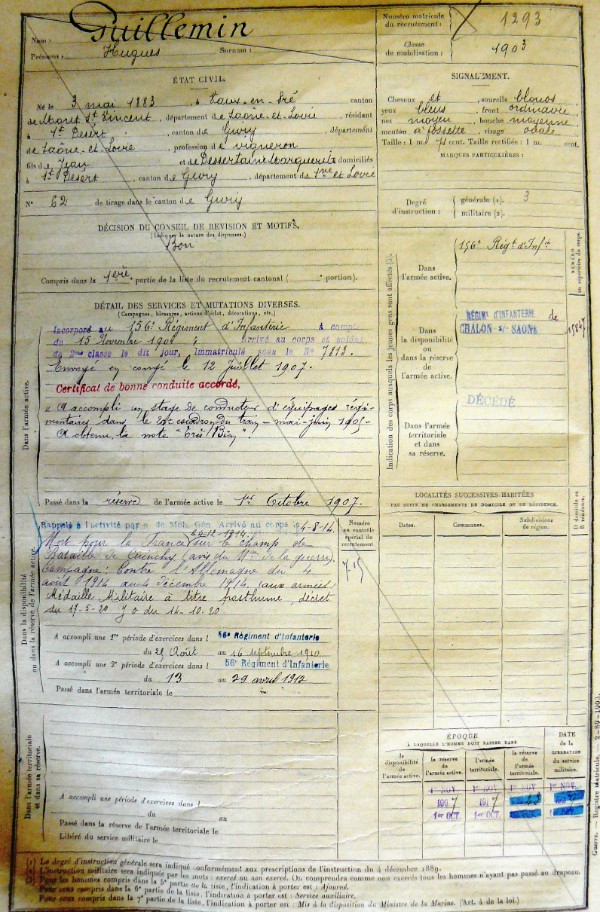 Nom : Guillemin
Prénoms : Hugues Surnom :
Numéro matricule du recrutement : 1293
Classe de mobilisation : 1903
ÉTAT CIVIL.
Né le 3 mai 1883, à canton
de Mont St Vincent, département de Saône-et-Loire, résidant
à St Désert, canton de Givry, département
de Saône et Loire, profession de vigneron
fils de Jean et de Marguerite domiciliés
à St Désert, canton de Givry, département de Sne et Loire
N° 62 de tirage dans le canton de Givry
SIGNALEMENT.
Cheveux et sourcils blonds
yeux bleus front ordinaire
nez moyen, bouche moyenne
menton à fossette, visage ovale
Taille : 1 m. cent. Taille rectifiée : 1 m. cent.
MARQUES PARTICULIÈRES :
Degré d'instruction : générale (1). 3
militaire (2).
DÉCISION DU CONSEIL DE REVISION ET MOTIFS.
Bon
Compris dans la 1ère partie de la liste du recrutement cantonal ( portion).
DÉTAIL DES SERVICES ET MUTATIONS DIVERSES.
(Campagnes, blessures, actions d'éclat, décorations, etc.)
Incorporé au 156e Régiment d'Infanterie à compter
du 15 Novembre 1904 Arrivé au corps et soldat
de 2me classe le dit jour, immatriculé sous le N° 7813.
Envoyé en congé le 12 Juillet 1907.
Certificat de bonne conduite accordé,
A accompli un stage de conducteur d'équipages régi-
mentaires dans le escadron du train - mai - juin 1905
A obtenu la note "Très Bien"
Passé dans la réserve de l'armée active le 1er Octobre 1907.
Rappelé à l'activité par Mob. Gén. Arrivé au corps le 4-8-14.
Mort pour la France sur le champ de
Bataille de (avis du Mre de la guerre)
Campagne : Contre l'Allemagne du 4
août 1914 au 4 décembre 1914 (aux armées)
Médaille Militaire à titre posthume, décret
du 17-5-20 J.O du 14-10-20
Numéro au contrôle spécial du recrutement
A accompli une 1re période d'exercices dans l 56e Régiment d'Infanterie
du 25 Août au 16 septembre 1910
A accompli une 2e période d'exercices dans l 56e Régiment d'Infanterie
du 13 au 29 avril 1912
Passé dans l'armée territoriale le
A accompli une période d'exercices dans l
du au
Passé dans la réserve de l'armée territoriale le
Libéré du service militaire le
Dans l'armée active.
Dans la disponibilité ou dans la réserve de l'armée active.
Dans l'armée territoriale et dans sa réserve.
Indication des corps auxquels les jeunes gens sont affectés
Dans l'armée active. 156e Régt d'Inft
Dans la disponibilité ou dans la réserve de l'armée active. RÉGIMENT D'INFANTERIE de CHALON-s/-SAONE
Dans l'armée territoriale et dans sa réserve. DÉCÉDÉ
LOCALITÉS SUCCESSIVES HABITÉES
PAR SUITE DE CHANGEMENTS DE DOMICILE OU DE RÉSIDENCE.
Dates. Communes. Subdivisions de région. D domicile ou R résidence.
ÉPOQUE
À LAQUELLE L'HOMME DOIT PASSER DANS
la disponibilité de l'armée active. la réserve de l'armée active. l'armée territoriale. la réserve de l'armée territoriale.
DATE de la LIBÉRATION du service militaire.
1er NOV. 1er NOV. 1er NOV.
1907 1917
1er OCT. 1er OCT.
(1) Le degré d'instruction générale sera indiqué conformément aux prescriptions de l'instruction du 4 décembre 1889.
(2) L'instruction militaire sera indiquée par les mots : exercé ou non exercé. On comprendra comme non exercés tous les hommes n'ayant pas passé au drapeau.
Pour les hommes compris dans la 5e partie de la liste, l'indication à porter est : Ajourné.
Pour ceux compris dans la 6e partie de la liste, l'indication à porter est : Service auxiliaire.
Pour ceux compris dans la 7e partie de la liste, l'indication à porter est : Mis à la disposition du Ministre de la Marine. (Art. 4 de la loi.)